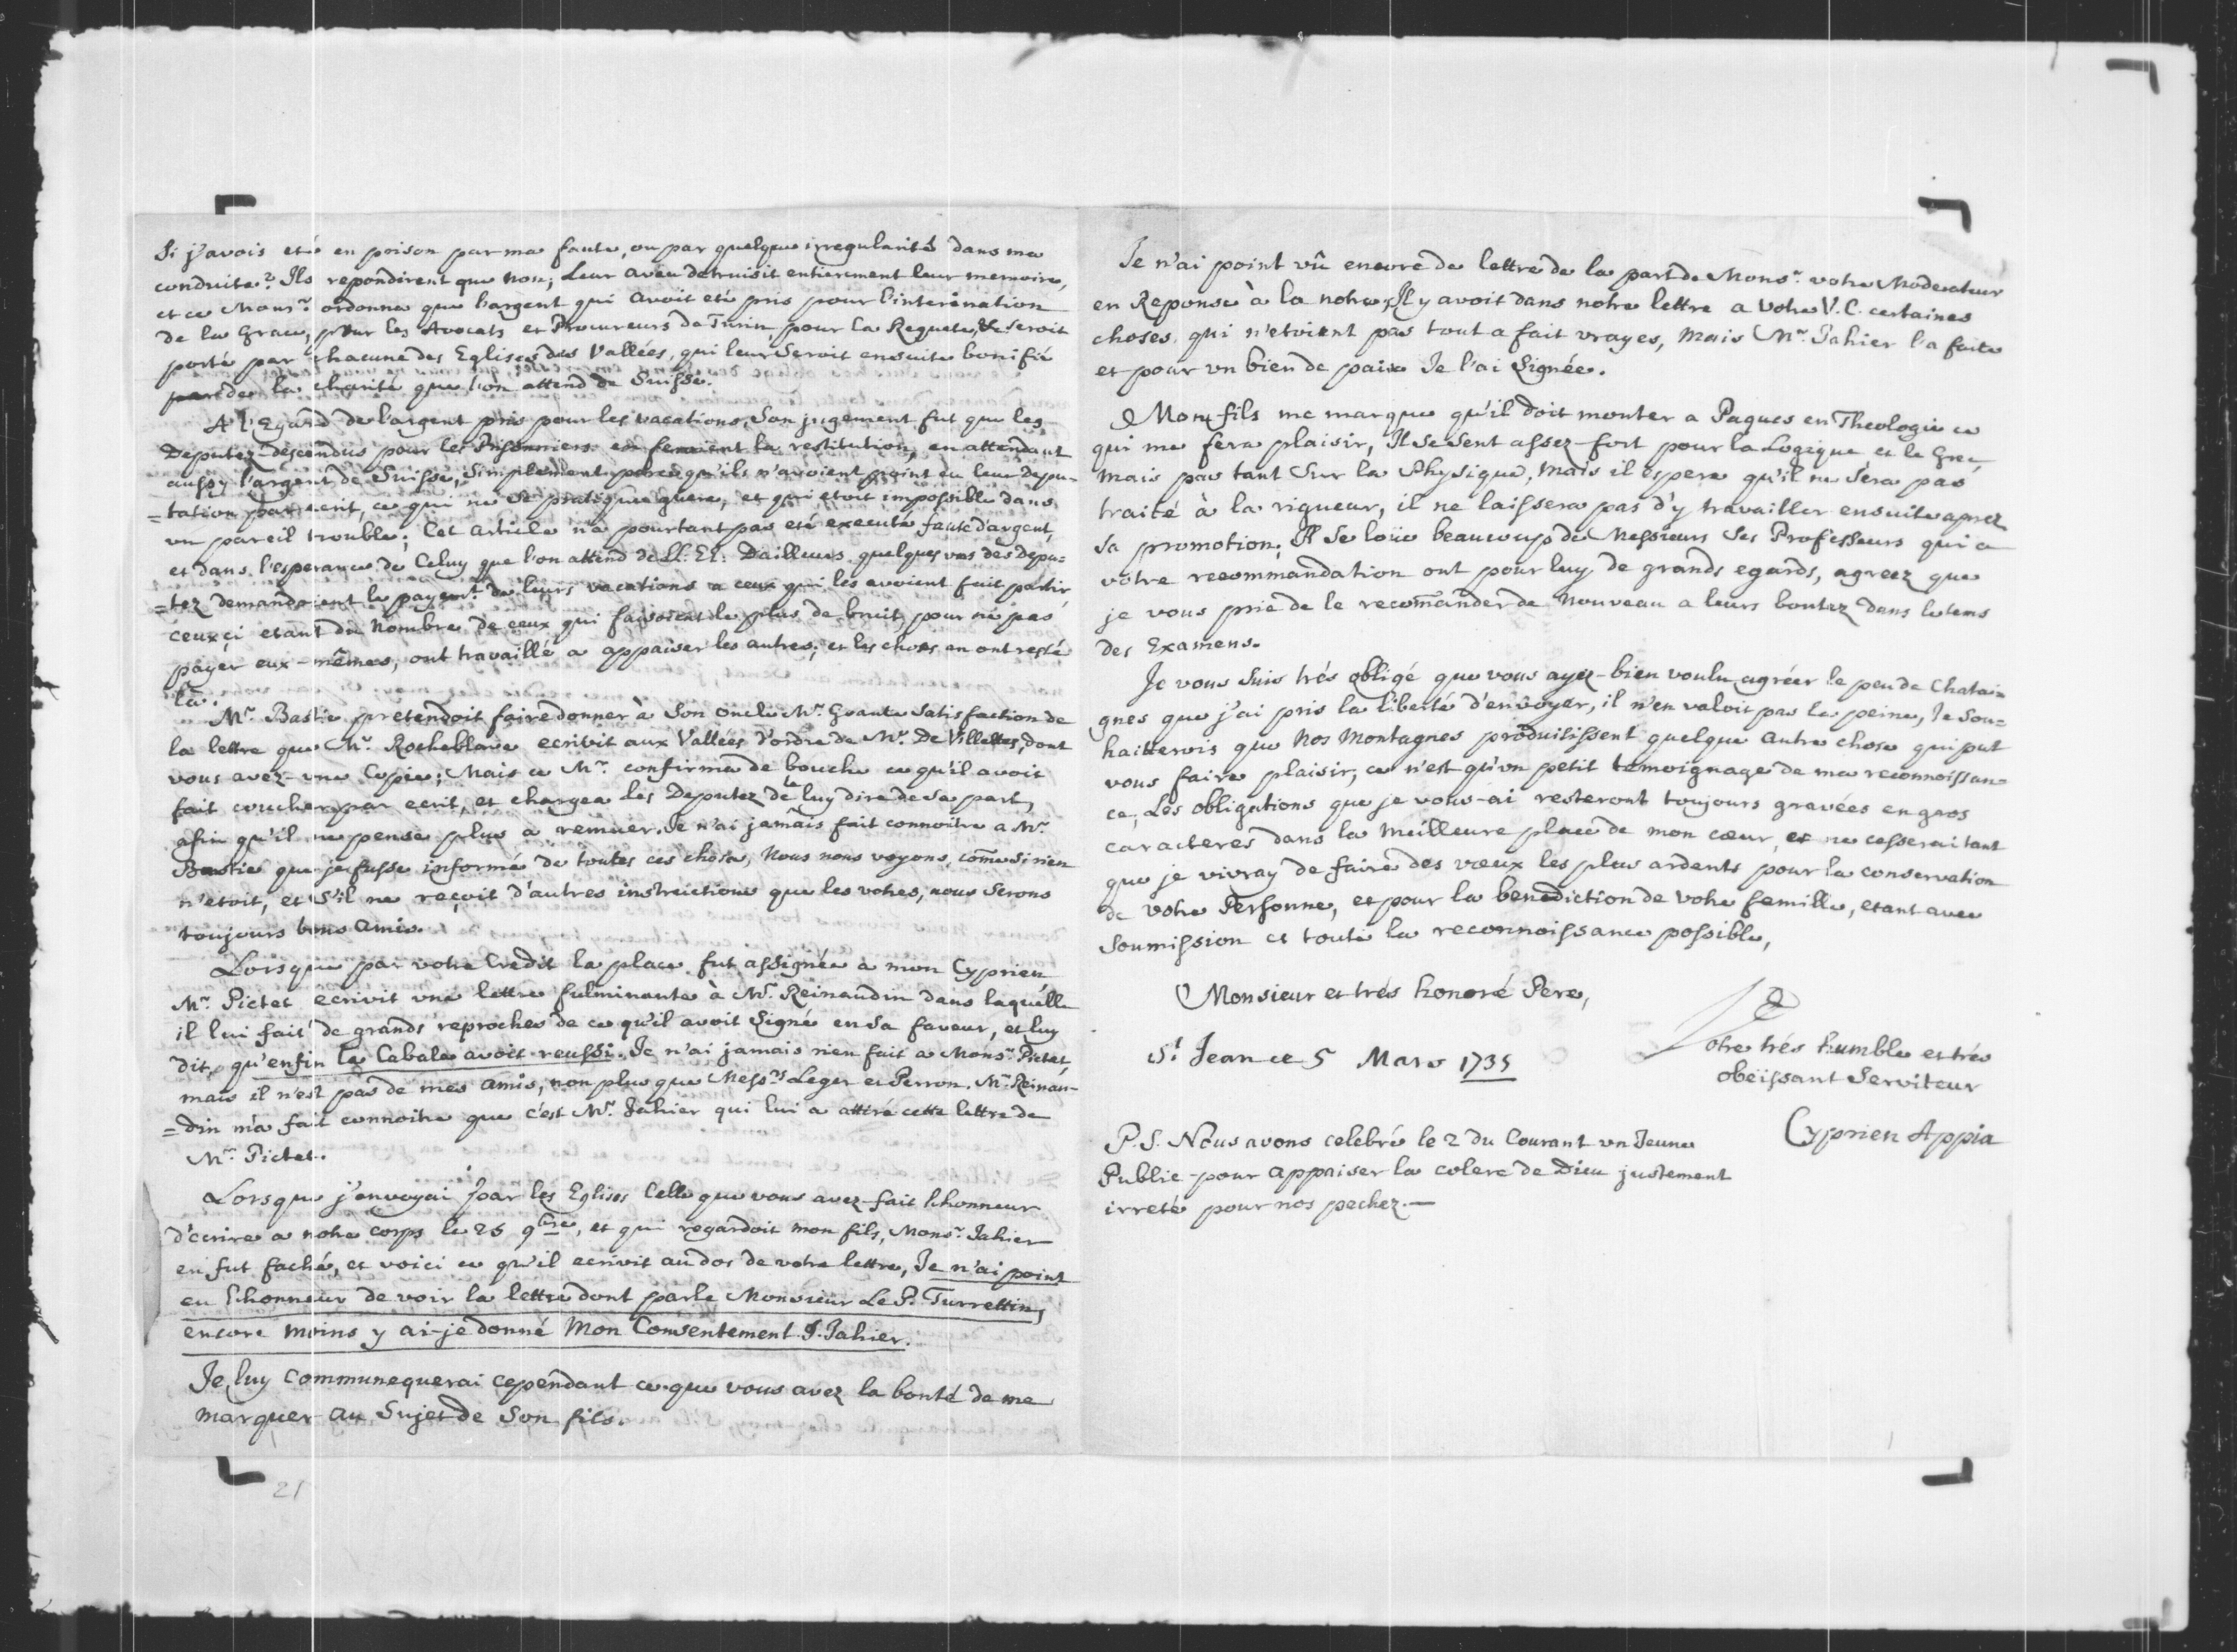 Si j'avois eté en prison par ma faute, ou par quelque irregularité dans ma
conduite? Ils repondirent que non; Leur aveu detruisit entierement leur memoire,
et ce Monsr. ordonna que l'argent qui avoit eté pris pour l'interination
de la Grace, pour les Avocats et Procureurs de Turin, pour la Requete, &c seroit
porté par chacune des Eglises des Vallées, qui leur seroit ensuite bonifié
par de la charité que l'on attend de Suisse.
A l'Egard de l'argent pris pour les vacations, Son jugement fut que les
Deputez descendus pour les Prisonniers en feroient la restitution, en attendant
aussy l'argent de Suisse, Simplement parce qu'ils n'avoient point eu leur Depu-
=tation par ecrit, ce qui ne se pratique guere, et qui etoit impossible dans
un pareil trouble; Cet article n'a pourtant pas eté executé faute d'argent,
et dans l'esperance de Celuy que l'on attend de LL. EE. D'ailleurs quelques uns des Depu=
=tez demandoient le payemt. de leurs vacations a ceux qui les avoient fait partir,
ceux çi etant du Nombre de ceux qui faisoient le plus de bruit, pour ne pas
payer eux-mêmes, ont travaillé a appaiser les autres; et les choses en ont resté
là.
Mr. Bastie pretendoit faire donner à Son oncle Mr. Grante Satisfaction de
la lettre que Mr. Rocheblave ecrivit aux Vallées d'ordre de Mr. De Villettes, dont
vous avez-une Copie; Mais ce Mr. confirma de bouche ce qu'il avoit
fait coucher par ecrit, et chargea les Deputez de le luy dire de sa part,
afin qu'il ne pense plus a remuer. Je n'ai jamais fait connoitre a Mr.
Bastie que je fusse informé de toutes ces choses, Nous nous voyons, come si rien
n'etoit, et S'il ne reçoit d'autres instructions que les votres, nous Serons
toujours bons amis.
Lorsque par votre Credit la place fut assignée a mon Cyprien
Mr. Pictet ecrivit une lettre fulminante à Mr. Reinaudin dans laquelle
il lui fait de grands reproches de ce qu'il avoit Signé en Sa faveur, et luy
dit, qu'enfin la Cabale avoit reussi. Je n'ai jamais rien fait a Monsr. Pictet,
mais il n'est pas de mes amis, non plus que Messrs Leger et Perron. Mr. Reinau-
=din m'a fait connoitre que c'est Mr. Jahier qui lui a attiré cette lettre de
Mr. Pictet.
Lorsque j'envoyai par les Eglises Celle que vous avez-fait l'honneur
d'écrire a notre corps le 25 9bre, et qui regardoit mon fils, Monsr. Jahier
en fut faché, et voici ce qu'il ecrivit au dos de votre lettre, Je n'ai point
eu l'honneur de voir la lettre dont parle Monsieur Le P. Turrettin,
encore moins y ai-je donné Mon Consentement. J. Jahier.
Je luy Communequerai cependant ce que vous avez la bonté de me
marquer au Sujet de Son fils.
21
Je n'ai point vû encore de lettre de la part de Monsr. votre Moderateur
en Reponse à la notre, Il y avoit dans notre lettre a Votre V. C. certaines
choses, qui n'etoient pas tout a fait vrayes, Mais Mr. Jahier l'a faite
et pour un bien de paix Je l'ai Signée.
Mon fils me marque qu'il doit monter a Paques en Theologie ce
qui me fera plaisir, Il se sent assez-fort pour la Logique et le Grec,
Mais pas tant Sur la Physique, Mais il espere qu'il ne Sera pas
traité à la rigueur, il ne laissera pas d'y travailler ensuite aprez
Sa promotion, Il Se loüe beaucoup de Messieurs Ses Professeurs qui a
vôtre recommandation ont pour luy de grands egards, agreez que
je vous prie de le recomander de Nouveau a leurs bontez dans le tems
des Examens.
Je vous Suis trés obligé que vous ayez-bien voulu agréer le peu de Chatai=
gnes que j'ai pris la liberté d'envoyer, il n'en valoit pas la peine, Je Sou=
haitterois que Nos Montagnes produisissent quelque autre chose qui put
vous faire plaisir, ce n'est qu'un petit temoignage de ma reconnoissan=
ce, Les obligations que je vous-ai resteront toujours gravées en gros
caracteres dans la Meilleure place de mon cœur, et ne cesserai tant
que je vivray de faire des vœux les plus ardents pour la conservation
de votre Personne, et pour la benediction de votre famille, etant avec
Soumission et toute la reconnoissance possible,
Monsieur et trés honoré Pere,
St Jean ce 5 Mars 1735
Votre trés humble et trés
obeïssant Serviteur
Cyprien Appia
P.S. Nous avons celebré le 2 du Courant un Jeune
Public-pour appaiser la colere de Dieu justement
irreté pour nos pechez.—